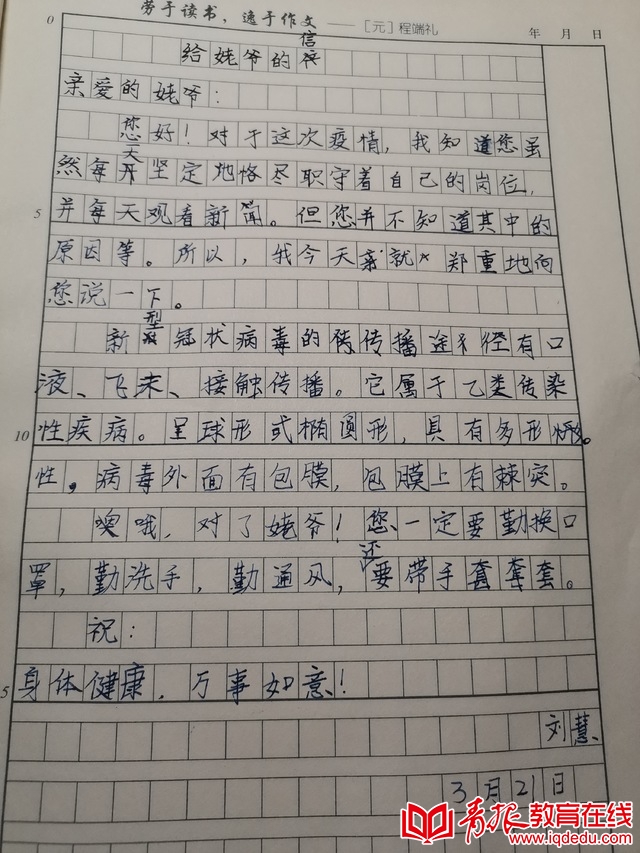 劳于读书，逸于作文 —— [元]程端礼
0
年 月 日
给姥爷的信
亲爱的姥爷：
您好！对于这次疫情，我知道您虽
然每天坚定地恪尽职守着自己的岗位，
5
并每天观看新闻。但您并不知道其中的
原因等。所以，我今天就郑重地向
您说一下。
新型冠状病毒的传播途径有口
液、飞沫、接触传播。它属于乙类传染
10
性疾病。呈球形或椭圆形，具有多形
性。病毒外面有包膜，包膜上有棘突。
噢哦，对了姥爷！您一定要勤换口
罩，勤洗手，勤通风，还要带手套。
祝：
5
身体健康，万事如意！
刘慧
3月21日
青报教育在线
www.iqdedu.com